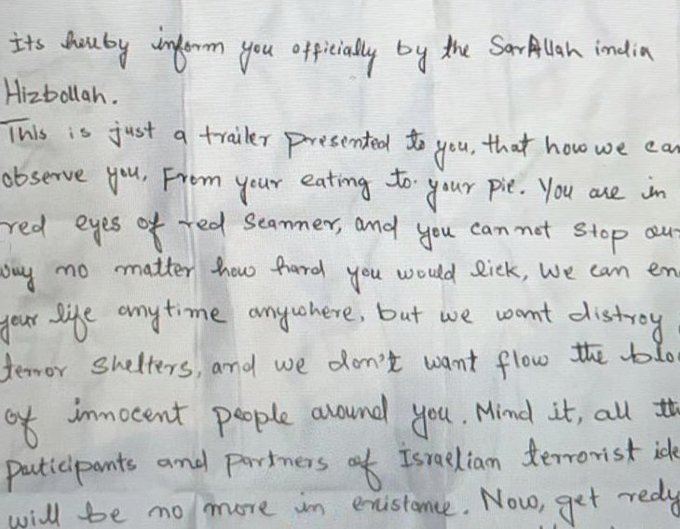 Its heuby inform you officially by the SarAllah india
Hizbollah.
This is just a trailer presented to you, that how we can
observe you, From your eating to your pie. You are in
red eyes of red scanner, and you can not stop our
way no matter how hard you would lick, We can en
your life anytime anywhere, but we want distroy
terror shelters, and we don't want flow the bloo
of innocent people around you. Mind it, all th
paticipants and partners of Israelian terrorist ide
will be no more in existance. Now, get redy